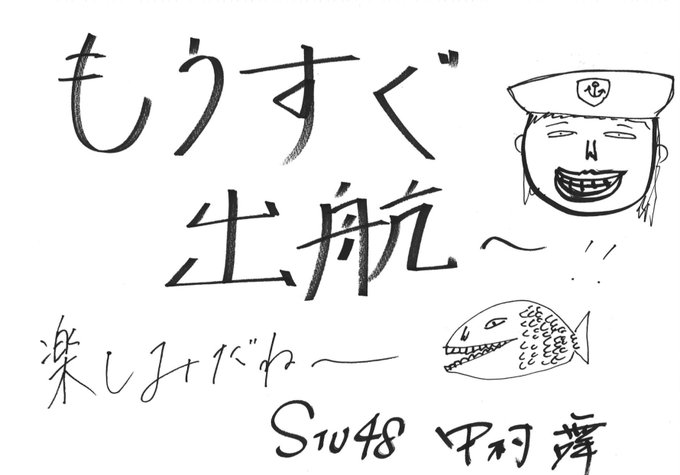 もうすぐ
出航〜!!
楽しみだね〜
STU48 中村 舞